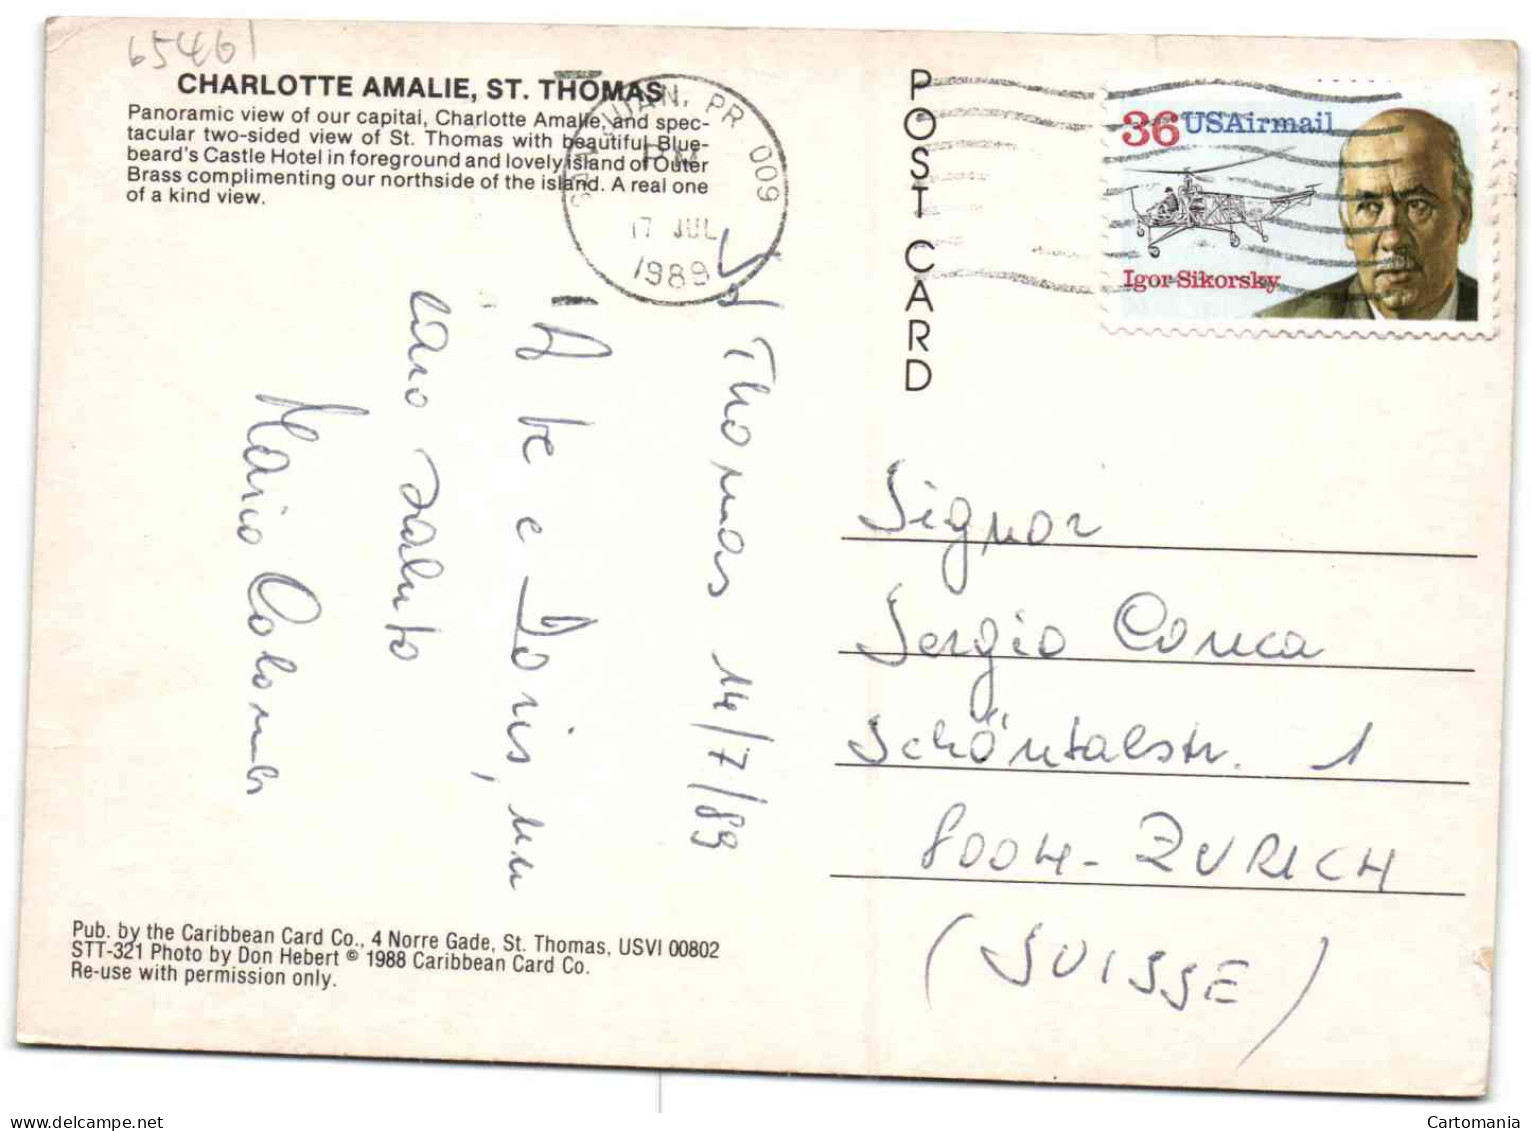 65461
CHARLOTTE AMALIE, ST. THOMAS
Panoramic view of our capital, Charlotte Amalie, and spec-
tacular two-sided view of St. Thomas with beautiful Blue-
beard's Castle Hotel in foreground and lovely island of Outer
Brass complimenting our northside of the island. A real one
of a kind view.
SAN JUAN, PR 009
PM
17 JUL
1989
POST CARD
36 USAirmail
Igor Sikorsky
St Thomas 14/7/89
A te e Doris, un
caro saluto
Mario Colombo
Signor
Sergio Conca
Schöntalstr. 1
8004 - ZURICH
(SUISSE)
Pub. by the Caribbean Card Co., 4 Norre Gade, St. Thomas, USVI 00802
STT-321 Photo by Don Hebert © 1988 Caribbean Card Co.
Re-use with permission only.
delcampe.net
Cartomania